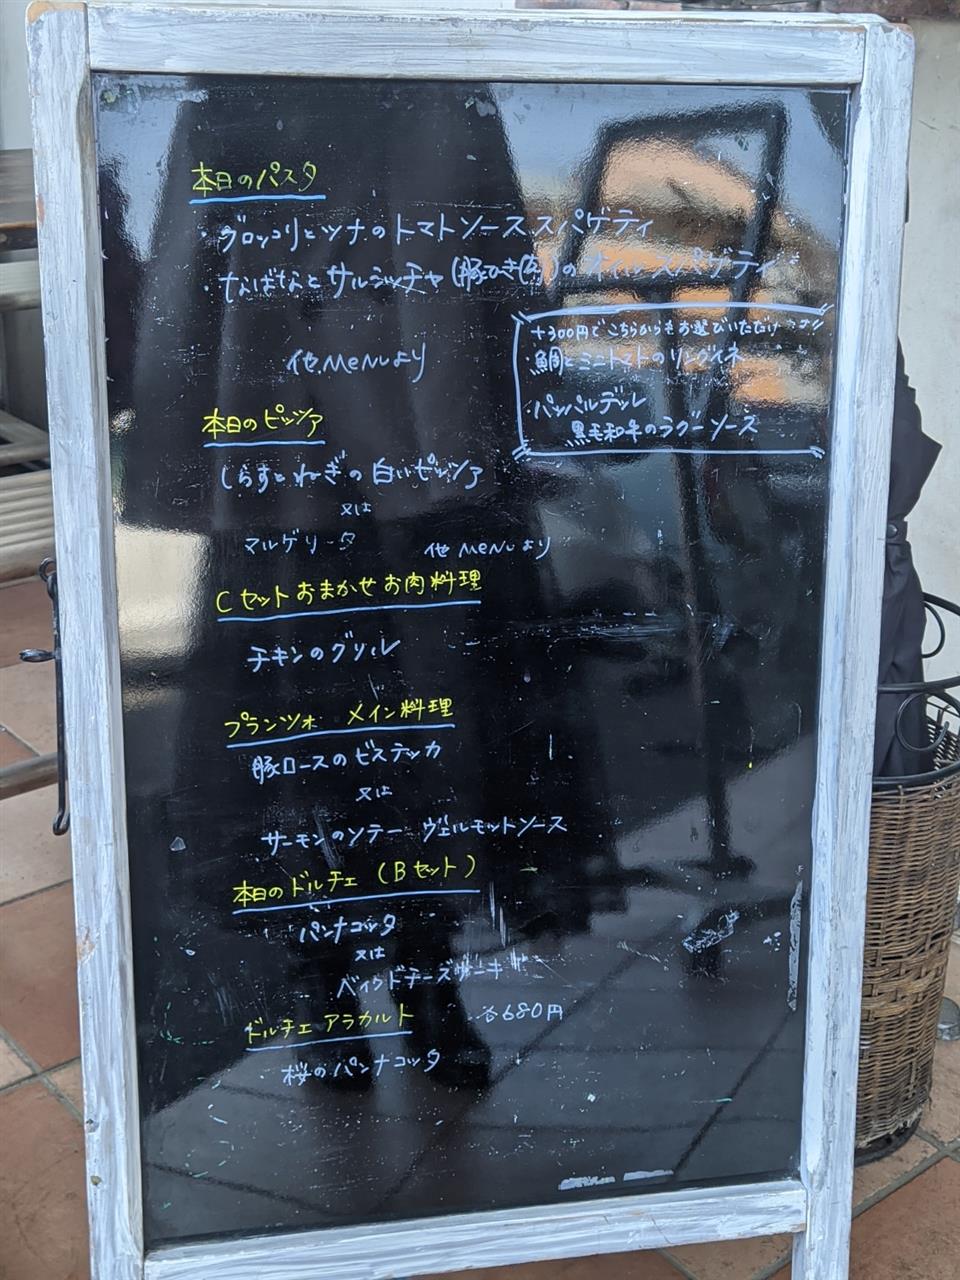 本日のパスタ
・ブロッコリとツナのトマトソース スパゲティ
・なばなとサルシッチャ(豚ひき肉)のオイルスパゲティ
+300円でこちらからもお選びいただけます!!
・鯛とミニトマトのリングイネ
・パッパルデッレ
黒毛和牛のラグーソース
他MENUより
本日のピッツァ
しらすとねぎの白いピッツァ
又は
マルゲリータ 他MENUより
Cセットおまかせお肉料理
チキンのグリル
プランツォ メイン料理
豚ロースのビステッカ
又は
サーモンのソテー ヴェルモットソース
本日のドルチェ (Bセット)
パンナコッタ
又は
ベイクドチーズケーキ
ドルチェ アラカルト 各680円
桜のパンナコッタ